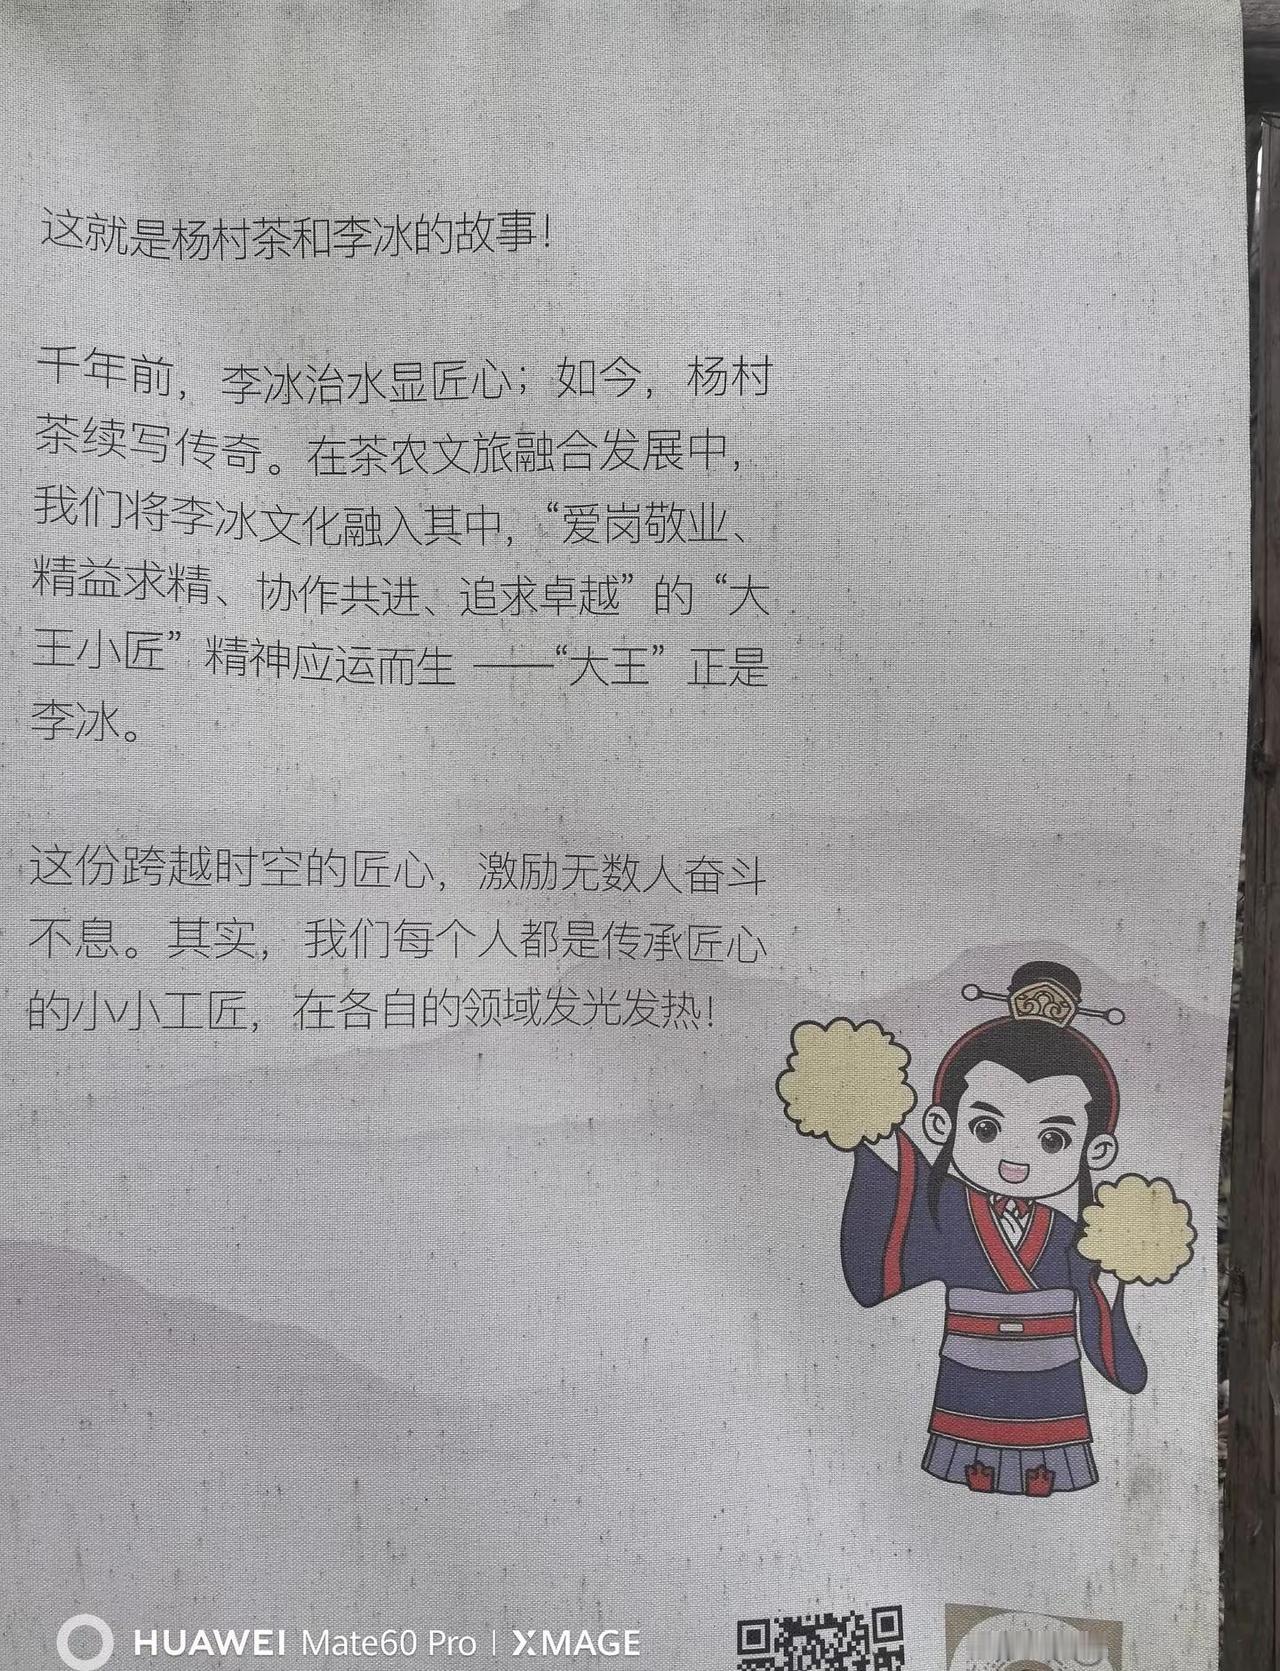 这就是杨村茶和李冰的故事！
千年前，李冰治水显匠心；如今，杨村
茶续写传奇。在茶农文旅融合发展中，
我们将李冰文化融入其中，“爱岗敬业、
精益求精、协作共进、追求卓越”的“大
王小匠”精神应运而生 ——“大王”正是
李冰。
这份跨越时空的匠心，激励无数人奋斗
不息。其实，我们每个人都是传承匠心
的小小工匠，在各自的领域发光发热！
HUAWEI Mate60 Pro | XMAGE